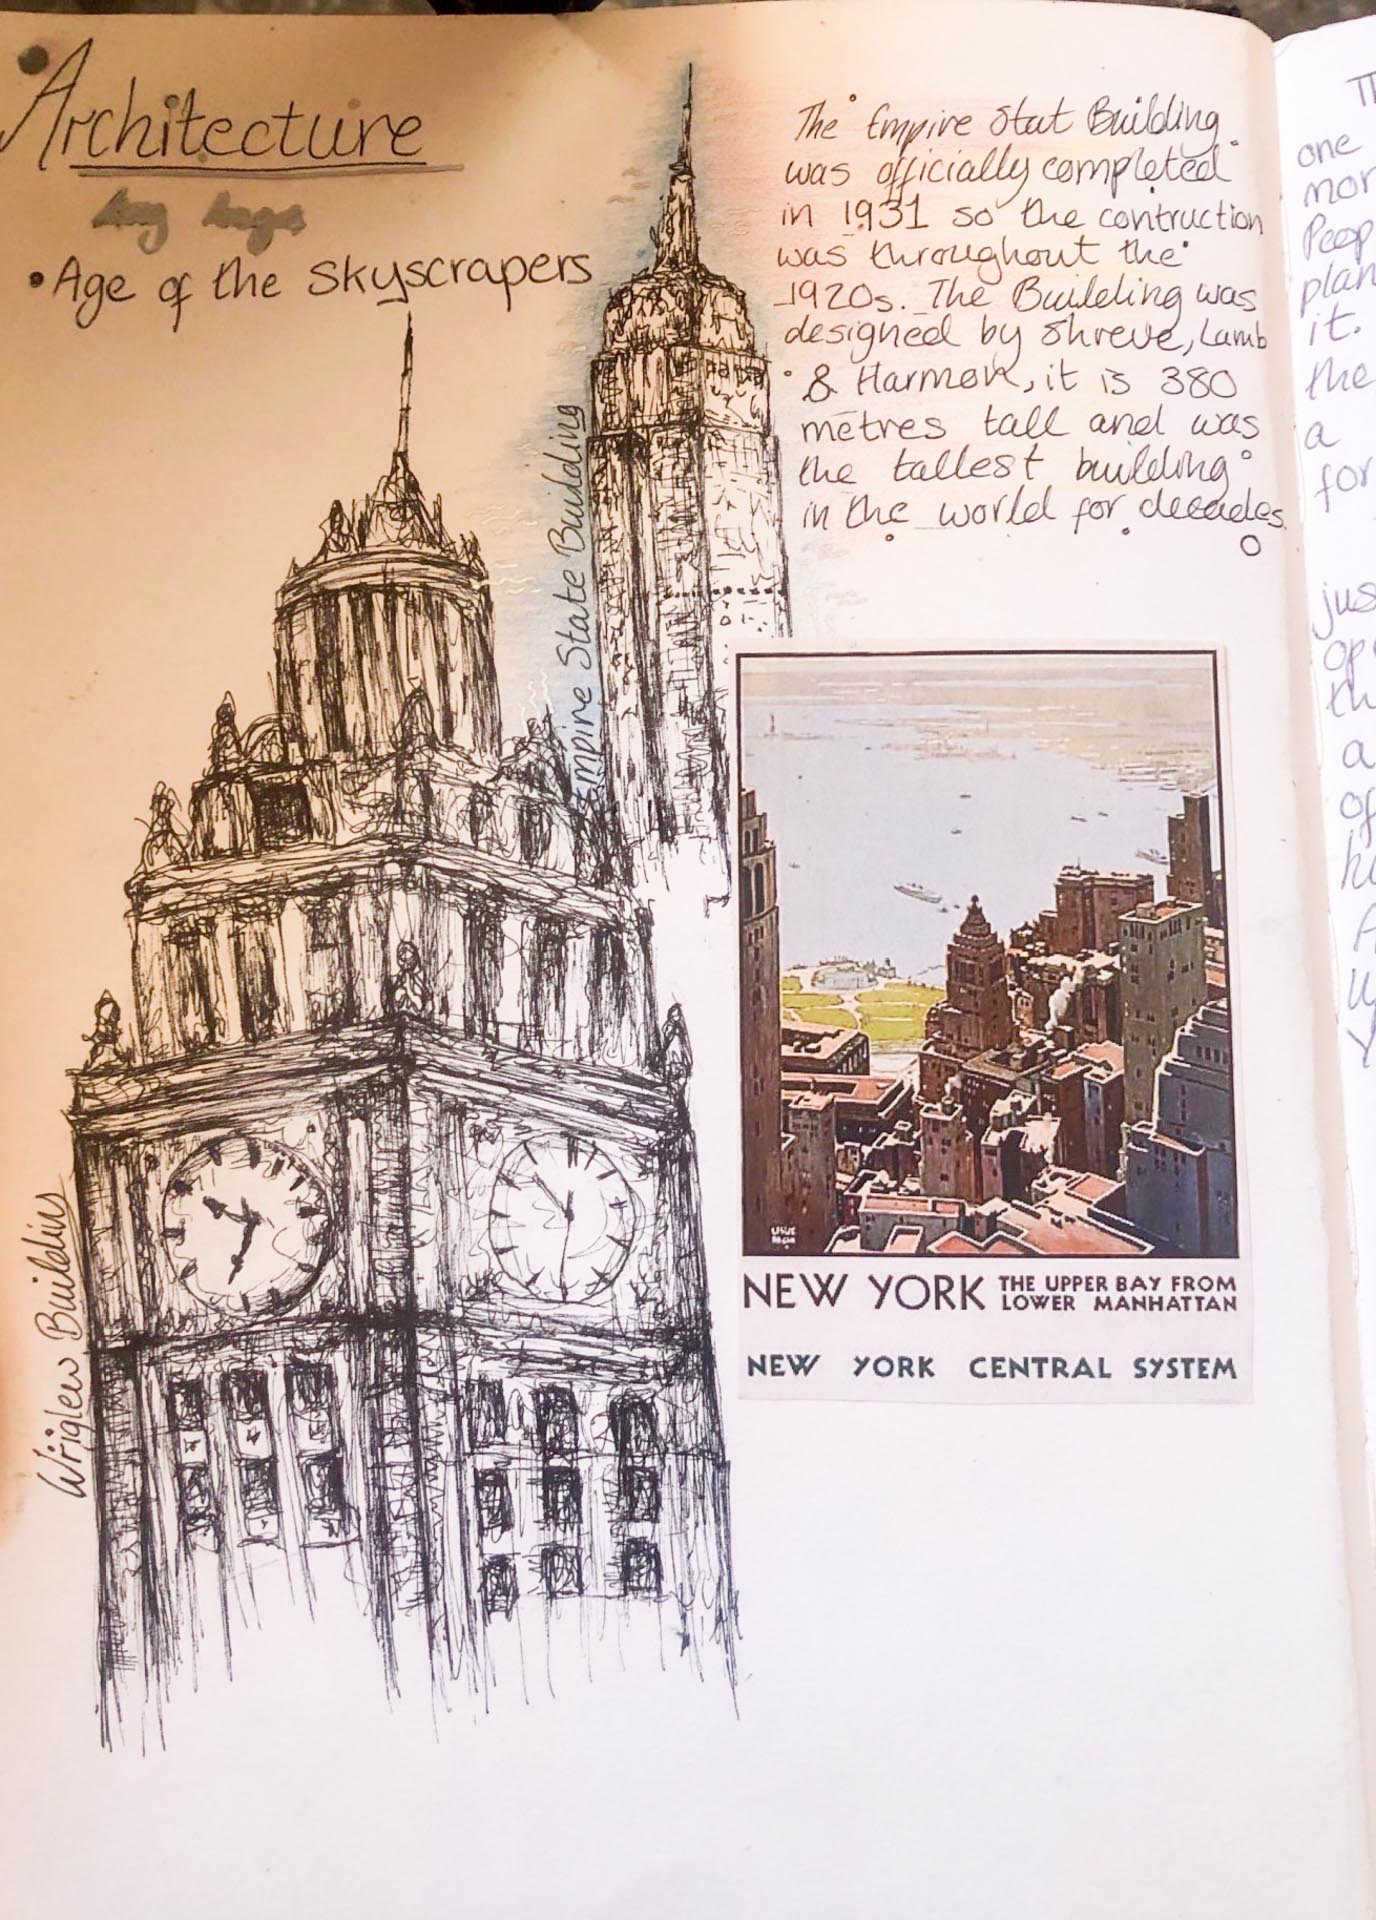 Architecture
• Age of the Skyscrapers
The Empire Stat Building
was officially completed
in 1931 so the contruction
was throughout the
1920s. The Building was
designed by Shreve, Lamb
& Harmon, it is 380
metres tall and was
the tallest building
in the world for decades.
Empire State Building
Wriglew Building
NEW YORK THE UPPER BAY FROM
LOWER MANHATTAN
NEW YORK CENTRAL SYSTEM
one
mor
Peop
plan
it.
the
a
for
jus
op
th
a
of